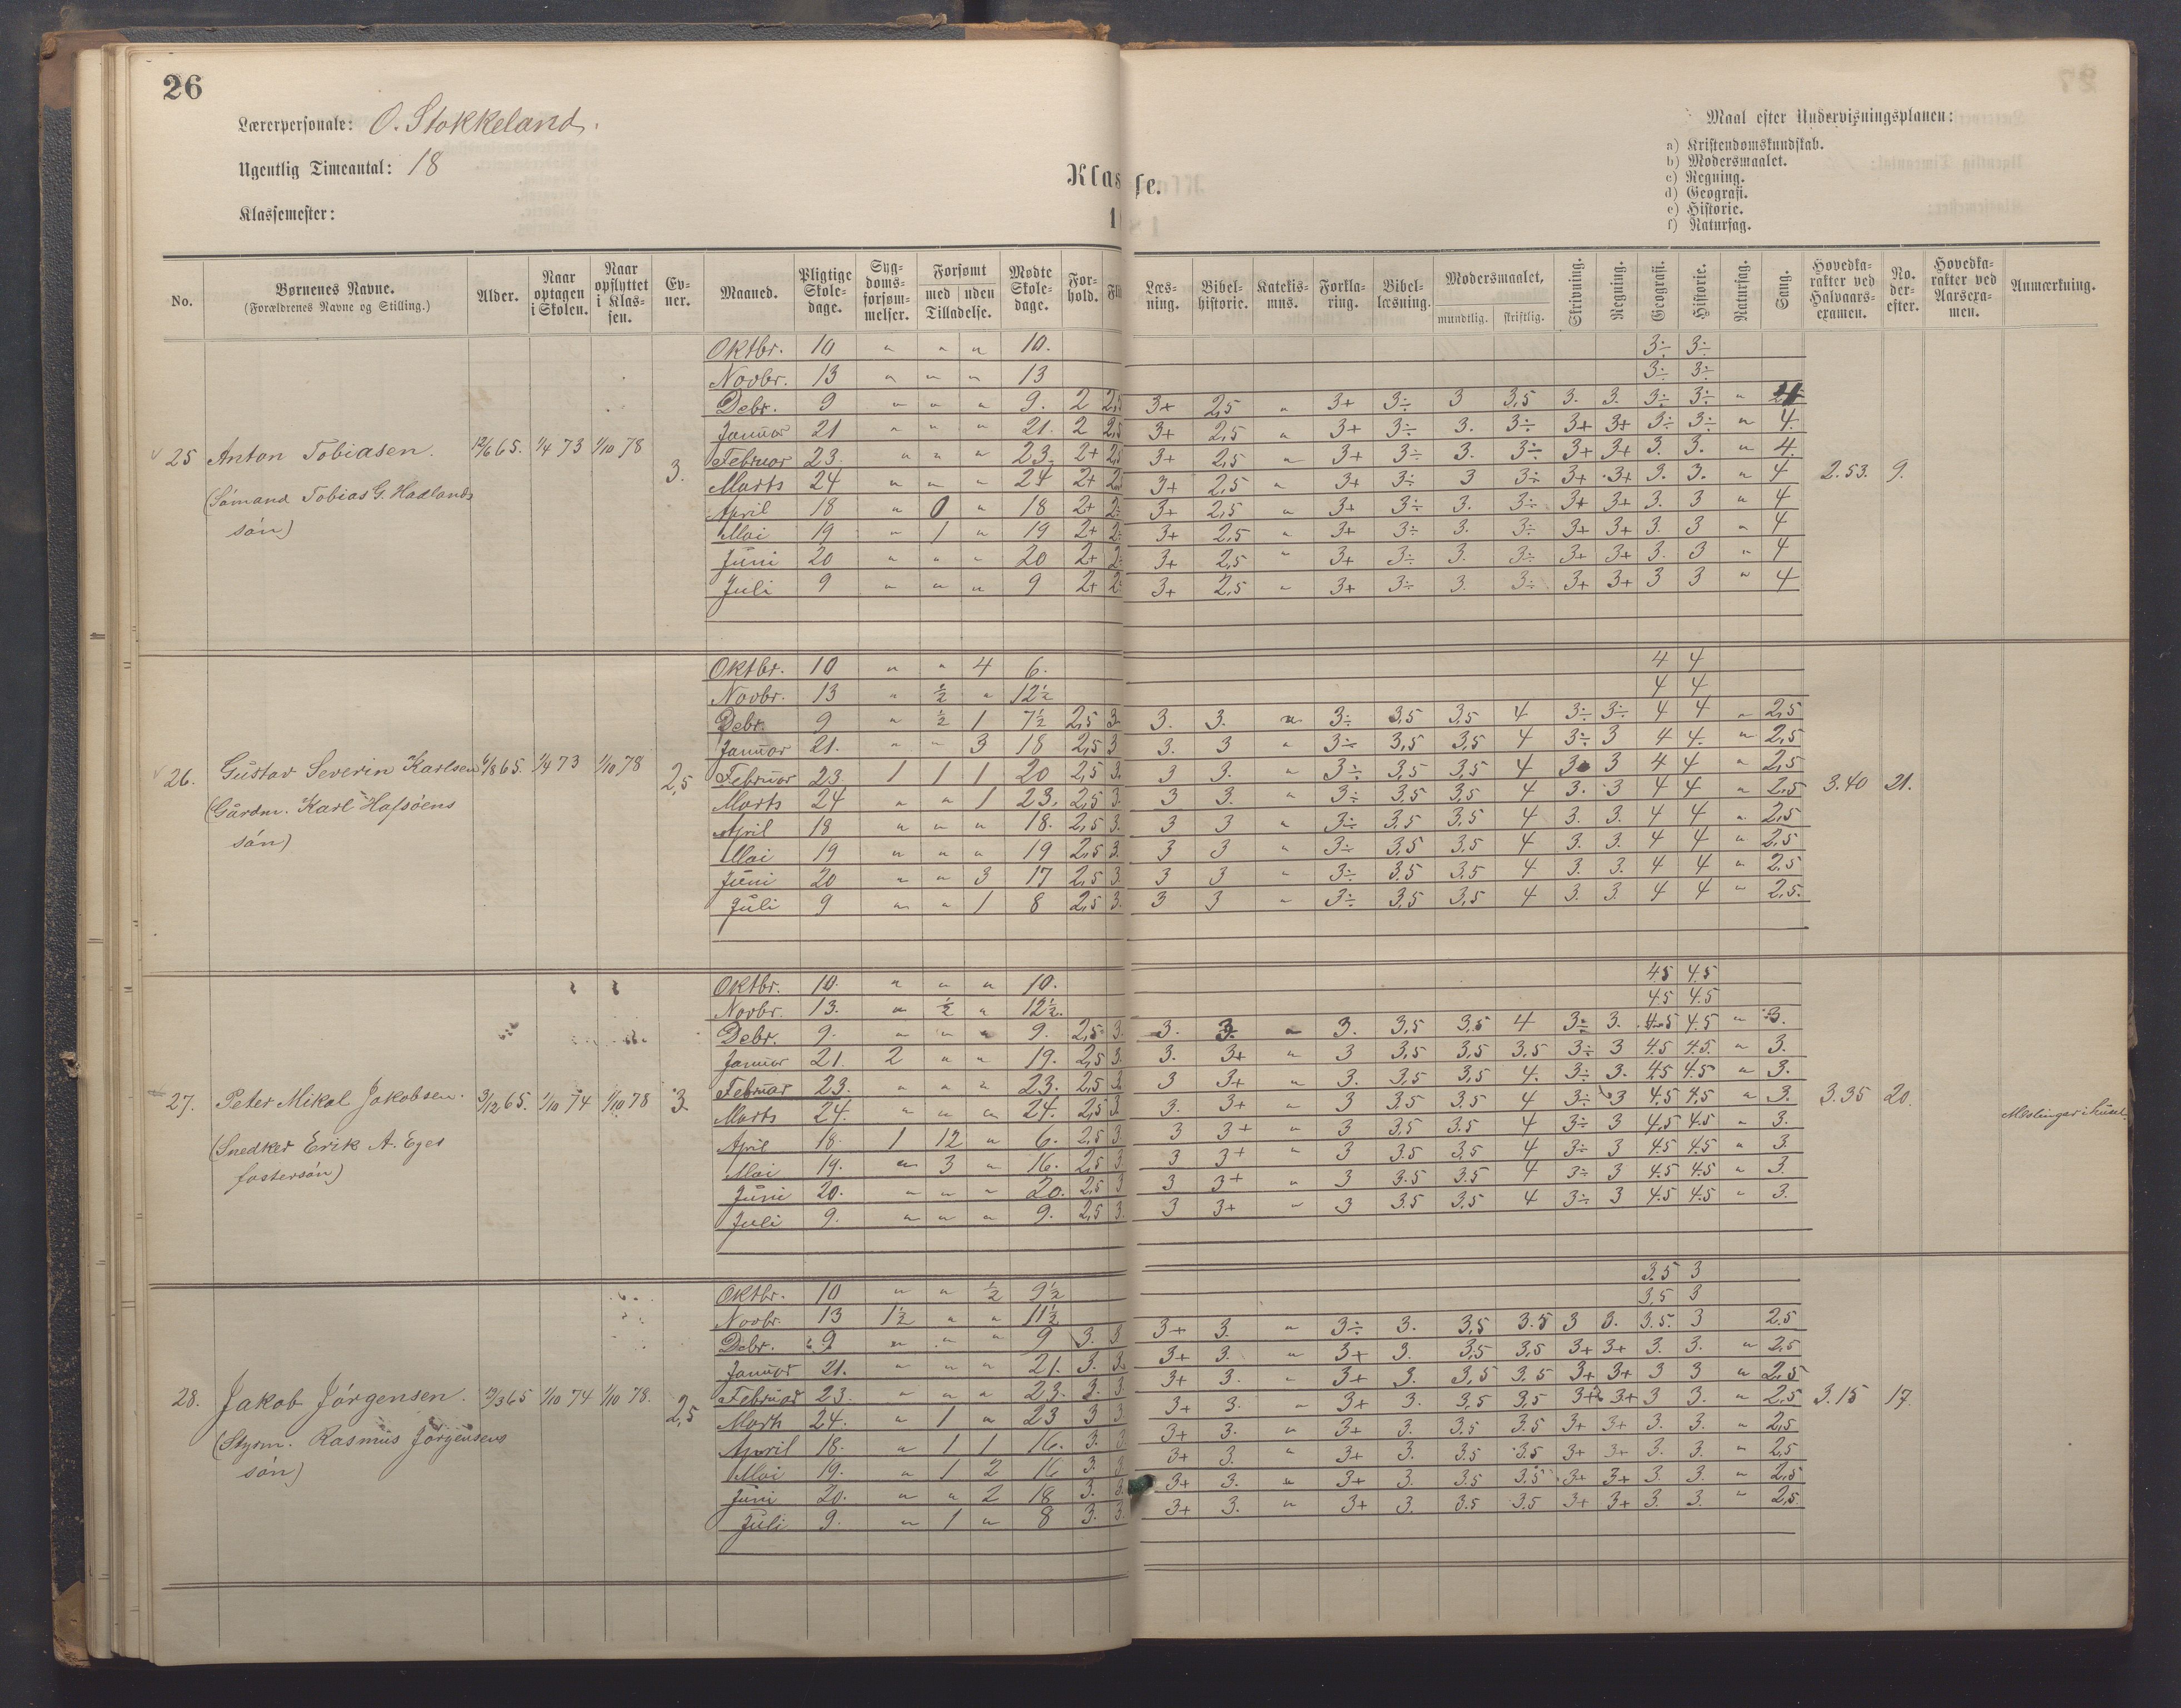 26
Lærerpersonale: O. Stokkeland.
Ugentlig Timeantal: 18
Klassemester:
Klas se.
Maal efter Undervisningsplanen:
a) Kristendomskundskab.
b) Modersmaalet.
c) Regning.
d) Geografi.
e) Historie.
f) Naturfag.
No. Børnenes Navne. (Forældrenes Navne og Stilling.) Alder. Naar optagen i Skolen. Naar opflyttet i Klassen. Evner. Maaned. Pligtige Skoledage. Sygdomsforsømmelser. Forsømt med uden Tilladelse. Mødte Skoledage. Forhold. Læsning. Bibelhistorie. Katekismus. Forklaring. Bibellæsning. Modersmaalet, mundtlig. skriftlig. Skrivning. Regning. Geografi. Historie. Naturfag. Sang. Hovedkarakter ved Halvaarsexamen. No. derefter. Hovedkarakter ved Aarsexamen. Anmærkning.
25 Anton Tobiasen. 12/6 65. 1/4 73 1/10 78 3. 2.53. 9.
(Sömand Tobias G. Hadlands
sön)
Oktbr. 10 " " " 10. 3÷ 3÷
Novbr. 13 " " " 13 3÷ 3÷
Debr. 9 " " " 9. 2 2,5 3+ 2,5 " 3+ 3÷ 3 3,5 3. 3. 3÷ 3÷ " 4
Januar 21 " " " 21. 2 2,5 3+ 2,5 " 3+ 3÷ 3. 3÷ 3+ 3+ 3÷ 3÷ " 4
Februar 23. " " " 23. 2+ 2,5 3+ 2,5 " 3+ 3÷ 3. 3÷ 3+ 3+ 3. 3. " 4.
Marts 24 " " " 24 2+ 3+ 2,5 " 3+ 3÷ 3 3÷ 3+ 3+ 3. 3. " 4
April 18 " 0 " 18 2+ 2÷ 3+ 2,5 " 3+ 3÷ 3. 3÷ 3+ 3+ 3. 3 " 4
Mai 19 " 1 " 19 2+ 2÷ 3+ 2,5 " 3+ 3÷ 3. 3÷ 3+ 3+ 3. 3 " 4
Juni 20 " " " 20 2+ 2÷ 3+ 2,5 " 3+ 3÷ 3. 3÷ 3+ 3+ 3. 3 " 4
Juli 9 " " " 9 2+ 2÷ 3+ 2,5 " 3+ 3÷ 3. 3÷ 3+ 3+ 3 3 " 4
26. Gustav Severin Karlsen 6/8 65. 1/4 73 1/10 78 2,5 3.40 21.
(Gårdm. Karl Hafsöens
sön)
Oktbr. 10 " " 4 6. 4 4
Novbr. 13 " 1/2 " 12 1/2 4 4
Debr. 9 " 1/2 1 7 1/2 2,5 3. 3. 3. " 3÷ 3,5 3,5 4 3÷ 3÷ 4 4 " 2,5
Januar 21. " " 3 18 2,5 3 3. 3 " 3÷ 3,5 3,5 4 3÷ 3 4 4. " 2,5
Februar 23. 1 1 1 20 2,5 3. 3 3. " 3÷ 3,5 3,5 4 3 3 4 4 " 2,5
Marts 24 " " 1 23. 2,5 3. 3 3. " 3÷ 3,5 3,5 4 3. 3 4 4 " 2,5
April 18 " " " 18. 2,5 3. 3 3 " 3÷ 3,5 3,5 4 3. 3. 4 4 " 2,5
Mai 19 " " " 19 2,5 3. 3 3 " 3÷ 3,5 3,5 4 3. 3. 4 4 " 2,5
Juni 20 " " 3 17 2,5 3. 3 3 " 3÷ 3,5 3,5 4 3. 3. 4 4 " 2,5
Juli 9 " " 1 8 2,5 3. 3 3 " 3÷ 3,5 3,5 4 3. 3. 4 4 " 2,5.
27. Peter Mikal Jakobsen. 3/12 65. 1/10 74 1/10 78 3. 3.35 20.
(Snedker Erik A. Eges
fostersön)
Meslinger i huset.
Oktbr. 10. " " " 10. 4.5 4.5
Novbr. 13. " 1/2 " 12 1/2. 4.5 4.5
Debr. 9. " " " 9. 2,5 3. 3. 3. " 3. 3,5 3,5 4 3÷ 3. 4.5 4.5 " 3.
Januar 21. 2 " " 19. 2,5 3. 3. 3+ " 3 3,5 3,5 3,5 3÷ 3 4.5 4.5. " 3.
Februar 23. " " " 23. 2,5 3. 3 3+ " 3. 3,5 3,5 4. 3÷ 3. 4,5 4.5 " 3.
Marts 24. " " " 24. 2,5 3. 3. 3+ " 3 3.5 3.5 4 3÷ 3 4.5 4,5 " 3.
April 18. 1 12 " 6. 2,5 3. 3 3+ " 3 3,5 3.5 4 3÷ 3 4,5 4.5 " 3.
Mai 19. " 3 " 16. 2,5 3 3 3+ " 3 3.5 3,5 4 3÷ 3 4.5 4.5 " 3.
Juni 20. " " " 20. 2,5 3 3 3+ " 3 3.5 3.5 4 3÷ 3 4.5 4.5 " 3.
Juli 9. " " " 9. 2,5 3. 3 3+ " 3 3.5 3.5 4 3÷ 3 4.5 4.5 " 3.
28. Jakob Jörgensen. 13/3 65 1/10 74 1/10 78. 2,5 3.15 17.
(Styrm. Rasmus Jörgensens
sön)
Oktbr. 10 " " 1/2 9 1/2 3.5 3
Novbr. 13 1 1/2 " " 11 1/2 3,5 3
Debr. 9 " " " 9 3. 3 3+ 3. " 3÷ 3. 3,5 3.5 3 3. 3.5. 3 2.5
Januar 21. " " " 21. 3. 3. 3+ 3. " 3+ 3. 3,5 3,5 3+ 3+ 3. 3. " 2,5
Februar 23. " " " 23. 3. 3 3+ 3. " 3+ 3. 3,5 3.5 3+ 3+ 3 3 " 2,5
Marts 24. " 1 " 23 3 3. 3+ 3. " 3+ 3. 3,5 3,5 3+ 3+ 3 3. " 2,5
April 18. " 1 1 16. 3. 3 3+ 3. " 3+ 3. 3.5 3.5 3+ 3+ 3. 3. " 2,5
Mai 19. " 1 2 16 3. 3 3+ 3. " 3+ 3. 3.5 3.5 3+ 3+ 3. 3. " 2,5
Juni 20. " " 2 18 3. 3. 3+ 3. " 3+ 3. 3.5 3.5 3+ 3+ 3. 3. " 2,5
Juli 9. " 1 " 8 3. 3. 3+ 3. " 3+ 3. 3.5 3.5 3+ 3+ 3. 3. " 2,5